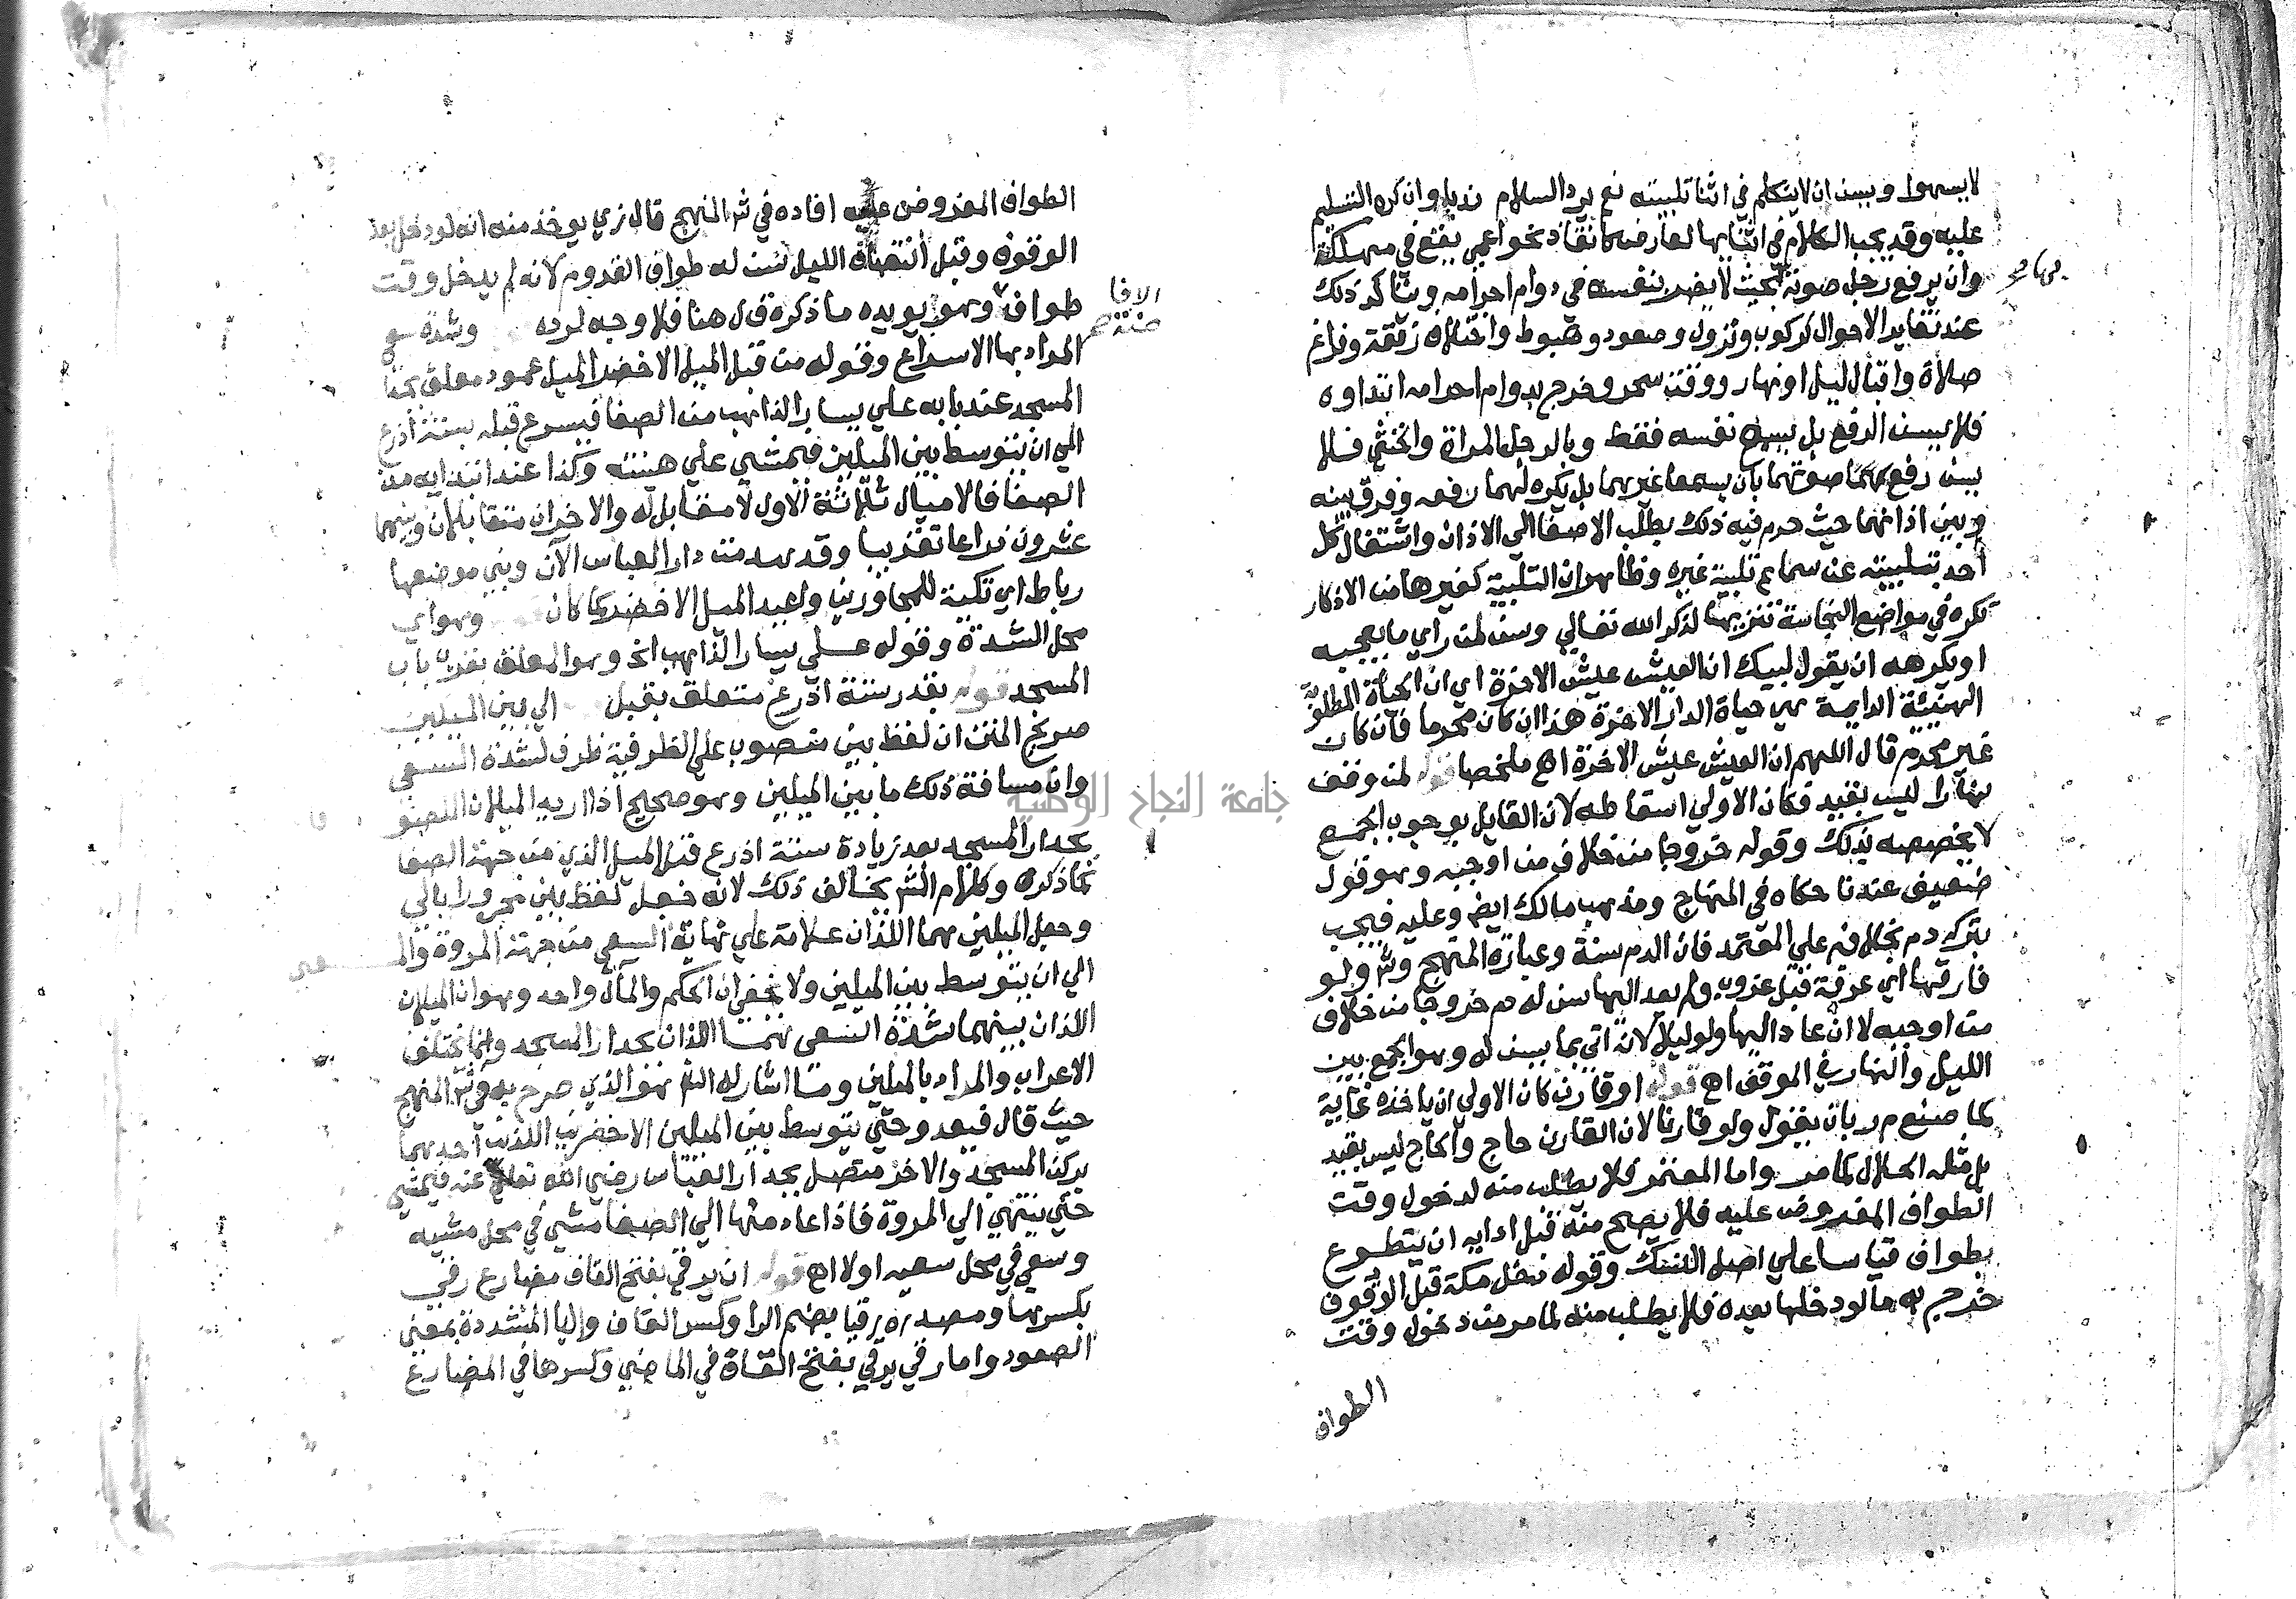 لايسهوا ويسن ان لا يتكلم في اثنا تلبيته نع يرد السلام ندبا وان كره التسليم
عليه وقد يجب الكلام في اثنايها لعارض كانقاذ نحو اعمي يقع في مهلكة
وان يرفع رجل صوته بحيث لا يضر بنفسه في دوام احرامه وتتاكد ذلك
عند تغاير الاحوال كركوب ونزول وصعود وهبوط واختلاط رفقة وفراغ
صلاة واقبال ليل او نهار ووقت سحر وخرج بدوام احرامه ابتداوه
فلا يسن الرفع بل يسمع نفسه فقط وبالرجل المراة والخنثي فلا
يسن رفعهما صوتهما بان يسمعا غيرهما بل يكره لهما رفعه وفرق بينه
وبين اذانهما حيث حرم فيه ذلك بطلب الاصغا الي الاذان واشتغال كل
احد بتلبيته عن سماع تلبية غيره وظاهر ان التلبية كغيرها من الاذكار
تكره في مواضع النجاسة تنزيها لذكر الله تعالي وسن لمن راي ما يعجبه
او يكرهه ان يقول لبيك ان العيش عيش الاخرة اي ان الحياة المطلوبة
الهنيئة الدايمة هي حياة الدار الاخرة هذا ان كان محرما فان كان
غير محرم قال اللهم ان العيش عيش الاخرة اهـ ملخصا قوله لمن وقف
نهارا ليس بقيد فكان الاولي اسقاطه لان القايل بوجوب الجمع
لا يخصصه بذلك وقوله خروجا من خلاف من اوجبه وهو قول
ضعيف عندنا حكاه في المنهاج ومذهب مالك ايضا وعليه فيجب
بتركه دم بخلافه علي المعتمد فان الدم سنة وعبارة المنهج وش ولو
فارقها اي عرفة قبل غروب ولم يعد اليها سن له دم خروجا من خلاف
من اوجبه لا ان عاد اليها ولو ليلا لانه اتي بما يسن له وهو الجمع بين
الليل والنهار في الموقف اهـ قوله او قارن كان الاولي ان ياخذه غاية
كما صنع م ر بان يقول ولو قارنا لان القارن حاج والحاج ليس بقيد
بل مثله الحلال كما مر واما المعتمر فلا يطلب منه لدخول وقت
الطواف المفروض عليه فلا يصح منه قبل ادايه ان يتطوع
بطواف قياسا علي اصل النسك وقوله دخل مكة قبل الوقوف
خرج به ما لو دخلها بعده فلا يطلب منه لما مر من دخول وقت
الطواف
الطواف المفروض عليه افاده في ش المنهج قال زي يوخذ منه انه لو دخل بعد
الوقوف وقبل انتصاف الليل سن له طواف القدوم لانه لم يدخل وقت
طواف وهو يويده ما ذكره ق ل هنا فلا وجه لرده وشدة سو
المراد بها الاسراع وقوله من قبل الميل الاخضر الميل عمود معلق بجدا
المسجد عند بابه علي يسار الذاهب من الصفا فيسرع قبله بستة اذرع
الي ان يتوسط بين الميلين فيمشي علي هينته وكذا عند ابتدايه من
الصفا فالاميال ثلاثة الاول لا مقابل له والاخران متقابلان وبينهما
عشرون ذراعا تقريبا وقد هدمت دار العباس الآن وبني موضعها
رباط اي تكية للمجاورين واعيد الميل الاخضر كما كان وهو اي
محل الشدة وقوله علي يسار الذاهب الخ وهو المعلق بقرب باب
المسجد قوله بقدر ستة اذرع متعلق بقبل الي بين الميلين
صريح المتن ان لفظ بين منصوب علي الظرفية ظرف لشدة السعي
وان مسافة ذلك ما بين الميلين وهو صحيح اذا اريد الميلان اللصقو
بجدار المسجد بعد زيادة ستة اذرع قبل الميل الذي من جهة الصفا
كما ذكره وكلام الش يخالف ذلك لانه جعل لفظ بين مجرورا بالي
وجعل الميلين هما اللذان علامة علي نهاية السعي من جهة المروة والمعني
الي ان يتوسط بين الميلين ولا يخفي ان الحكم والمآل واحد وهو ان الميلان
اللذان بينهما شدة السعي هما اللذان بجدار المسجد وانما يختلف
الاعراب والمراد بالميلين وما اشار له الش هو الذي صرح به في ش المنهج
حيث قال فيعدو حتي يتوسط بين الميلين الاخضرين اللذين احدهما
بركن المسجد والاخر متصل بجدار العباس رضي الله تعالي عنه فيمشي
حتي ينتهي الي المروة فاذا عاد منها الي الصفا مشي في محل مشيه
وسعي في محل سعيه اولا اهـ قوله ان يرقي بفتح القاف مضارع رقي
بكسرها ومصدره رقيا بضم الرا وكسر القاف واليا المشددة بمعني
الصعود واما رقي يرقي بفتح القاف في الماضي وكسرها في المضارع
الافا
جامعة النجاح الوطنية